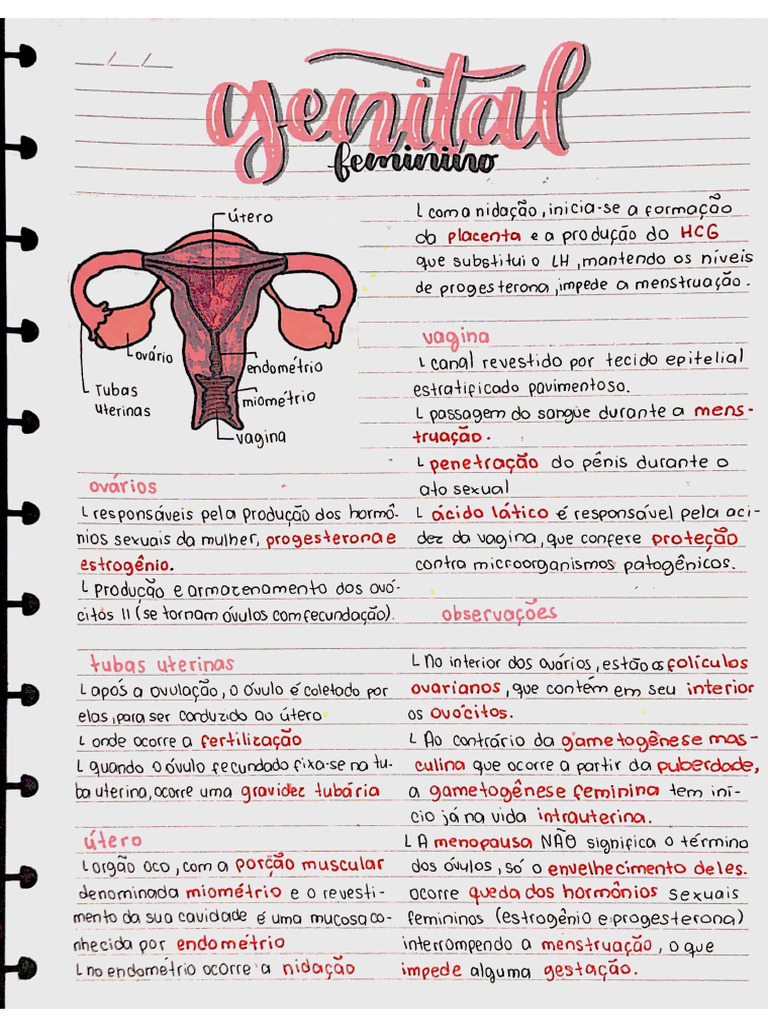 __/__/__
genital
feminino
útero
ovário
endométrio
Tubas
uterinas
miométrio
vagina
ovários
└ responsáveis pela produção dos hormô-
nios sexuais da mulher, progesterona e
estrogênio.
└ produção e armazenamento dos ovó-
citós II (se tornam óvulos com fecundação).
tubas uterinas
└ após a ovulação, o óvulo é coletado por
elas, para ser conduzido ao útero
└ onde ocorre a fertilização
└ quando o óvulo fecundado fixa-se na tu-
ba uterina, ocorre uma gravidez tubária
útero
└ orgão oco, com a porção muscular
denominada miométrio e o revesti-
mento da sua cavidade é uma mucosa co-
nhecida por endométrio
└ no endométrio ocorre a nidação
└ com a nidação, inicia-se a formação
da placenta e a produção do HCG
que substitui o LH, mantendo os níveis
de progesterona, impede a menstruação.
vagina
└ canal revestido por tecido epitelial
estratificado pavimentoso.
└ passagem do sangue durante a mens-
truação.
└ penetração do pênis durante o
ato sexual
└ ácido lático é responsável pela aci-
dez da vagina, que confere proteção
contra microorganismos patogênicos.
observações
└ No interior dos ovários, estão os folículos
ovarianos, que contém em seu interior
os ovócitos.
└ Ao contrário da gametogênese mas-
culina que ocorre a partir da puberdade,
a gametogênese feminina tem iní-
cio já na vida intrauterina.
└ A menopausa NÃO significa o término
dos óvulos, só o envelhecimento deles.
ocorre queda dos hormônios sexuais
femininos (estrogênio e progesterona)
interrompendo a menstruação, o que
impede alguma gestação.